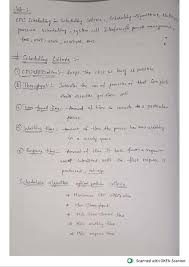 Unit-2
CPU Scheduling :- Scheduling Criteria, Scheduling Algorithms, Multiple
processor Scheduling, System call Interface for process management,
fork, exit, wait, waitpid, exec
* Scheduling Criteria :-
① CPU Utilization :- Keeps the CPU as busy as possible
② Throughput :- number of process that complete
their execution per time unit.
③ Turn around time :- Amount of time to execute a particular
process.
④ Waiting time :- Amount of time the process has been waiting
in a ready queue
⑤ Response time :- Amount of time it takes from a request
was submitted until the first response is
produced
Scheduling algorithm optimization criteria
* Maximum CPU utilization
* Max throughput
* Min turn around time
* Min waiting time
* Min response time
Scanned with OKEN Scanner